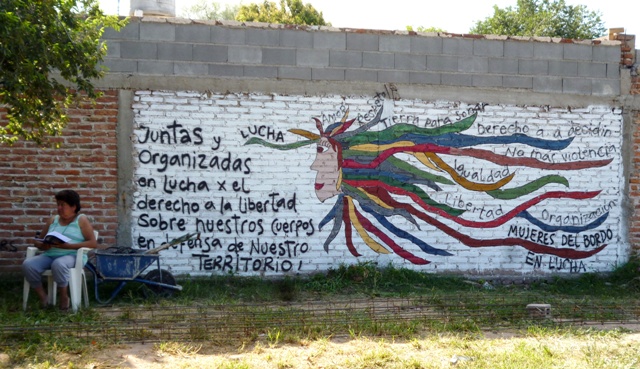 Juntas y
Organizadas
en Lucha x el
derecho a la libertad
Sobre nuestros Cuerpos
en defensa de Nuestro
TERRITORIO!
LUCHA
Tierra para
Derecho a decidir
No mas violencia
Igualdad
Libertad
Organización
MUJERES DEL BORDO
EN LUCHA